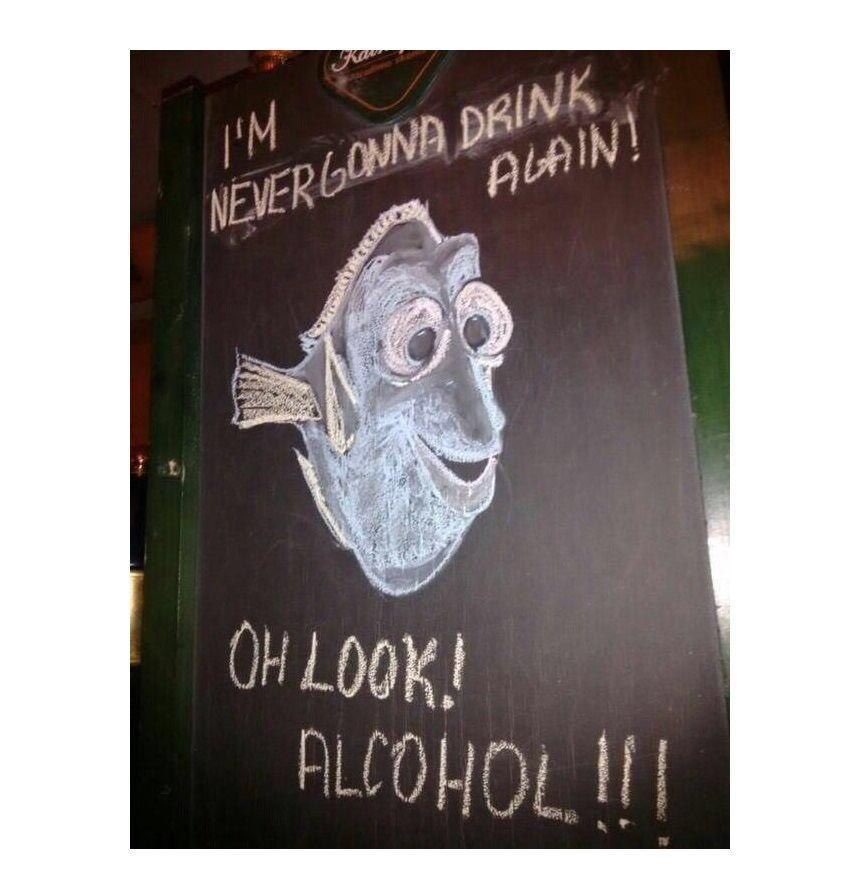 I'M
NEVER GONNA DRINK
AGAIN!
OH LOOK!
ALCOHOL!!!